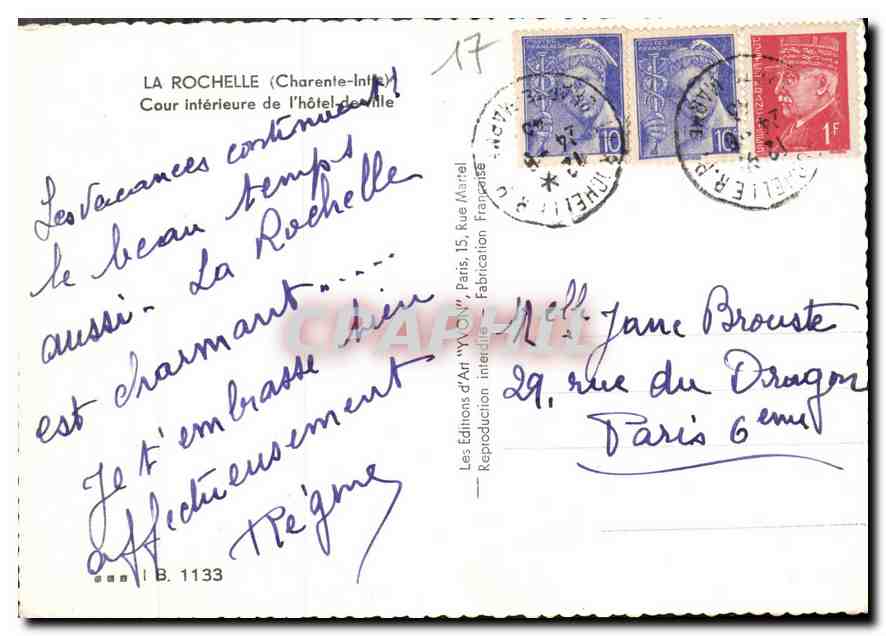 17
LA ROCHELLE (Charente-Infre)
Cour intérieure de l'hôtel-de-ville
Les vacances continuent!
le beau temps
aussi - La Rochelle
est charmant.....
Je t'embrasse bien
affectueusement
B. 1133
Les Editions d'Art "YVON", Paris, 15, Rue Martel
Reproduction interdite - Fabrication Française
POSTES FRANÇAISES
10
10
1F
Melle Jane Brouste
29, rue du Dragon
Paris 6eme
CPAPHIL